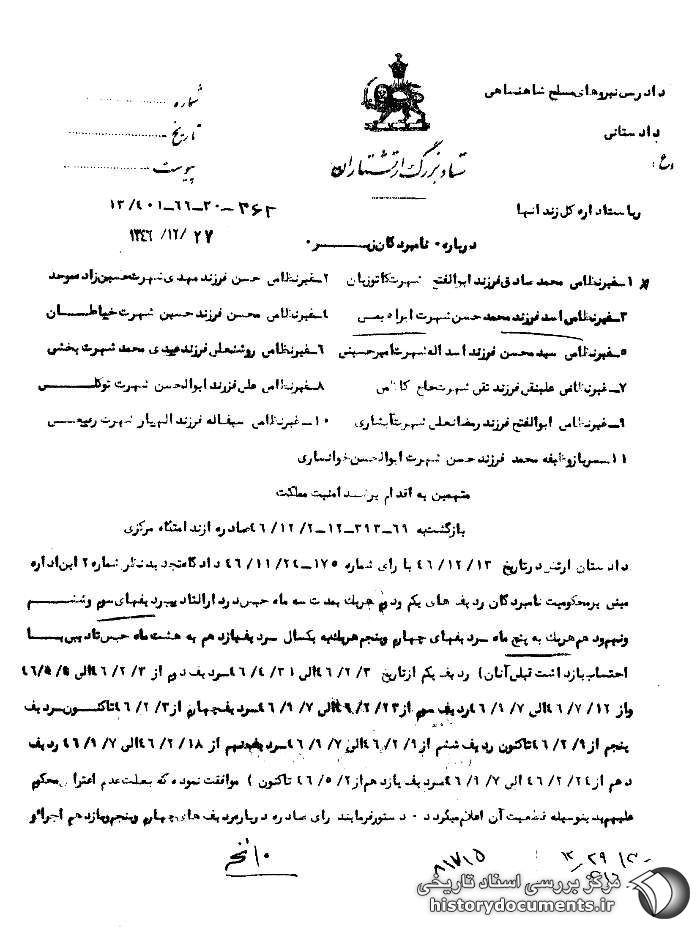 دادرسی نیروهای مسلح شاهنشاهی
دادستانی
ستاد بزرگ ارتشتاران
شماره
تاریخ
پیوست
ریاست اداره کل زندانها
۳۶۲-۳۰-۶۶-۴۰۱/۱۲
۲۷/۱۲/۱۳۴۶
درباره نامبردگان زیر
۱ـ غیرنظامی محمد صادق فرزند ابوالفتح شهرت کاتوزیان ۲ـ غیرنظامی حسن فرزند مهدی شهرت حسین زاده موحد
۳ـ غیرنظامی اسد فرزند محمد حسن شهرت ابراهیمی ۴ـ غیرنظامی محسن فرزند حسین شهرت خیاطان
۵ـ غیرنظامی سید محسن فرزند اسداله شهرت امیرحسینی ۶ـ غیرنظامی روشنعلی فرزند عیدی محمد شهرت بخشی
۷ـ غیرنظامی علینقی فرزند تقی شهرت حاج کاظمی ۸ـ غیرنظامی علی فرزند ابوالحسن شهرت توکلی
۹ـ غیرنظامی ابوالفتح فرزند رمضانعلی شهرت آبشاری ۱۰ـ غیرنظامی سیفاله فرزند الهیار شهرت ربیعی
۱۱ سرباز وظیفه محمد فرزند حسن شهرت ابوالحسن خوانساری
متهمین به اقدام بر ضد امنیت مملکت
بازگشت به ۶۹-۳۹۳-۱۲-۴۶/۱۲/۲ صادره از ندامتگاه مرکزی
دادستان ارتش در تاریخ ۴۶/۱۲/۱۳ با رای شماره ۱۷۵-۴۶/۱۱/۲۴ دادگاه تجدید نظر شماره ۲ این اداره
مبنی بر محکومیت نامبردگان ردیف های یکم و دوم هر یک بمدت سه ماه حبس در دارالتادیب ردیفهای سوم و ششم
و نهم و دهم هر یک به پنج ماه ردیفهای چهارم و پنجم هر یک به یکسال ردیف یازدهم به هشت ماه حبس تادیبی با
احتساب بازداشت قبلی آنان ( ردیف یکم از تاریخ ۴۶/۲/۳ الی ۴۶/۴/۳۱ ردیف دوم از ۴۶/۲/۳ الی ۴۶/۵/۵
و از ۴۶/۷/۱۲ الی ۴۶/۹/۷ ردیف سوم از ۴۶/۲/۲۳ الی ۴۶/۹/۷ ردیف چهارم از ۴۶/۲/۳ تاکنون ردیف
پنجم از ۴۶/۲/۹ تاکنون ردیف ششم از ۴۶/۲/۹ الی ۴۶/۹/۷ ردیف نهم از ۴۶/۲/۱۸ الی ۴۶/۹/۷ ردیف
دهم از ۴۶/۲/۲۴ الی ۴۶/۹/۷ ردیف یازدهم از ۴۶/۵/۲ تاکنون ) موافقت نموده که بعلت عدم اعتراض محکوم
علیهم بدینوسیله قطعیت آن اعلام میگردد ۰ دستور فرمایند رای صادره درباره ردیف های چهارم و پنجم و یازدهم اجرا و
۱۰ نفر
مرکز بررسی اسناد تاریخی
historydocuments.ir